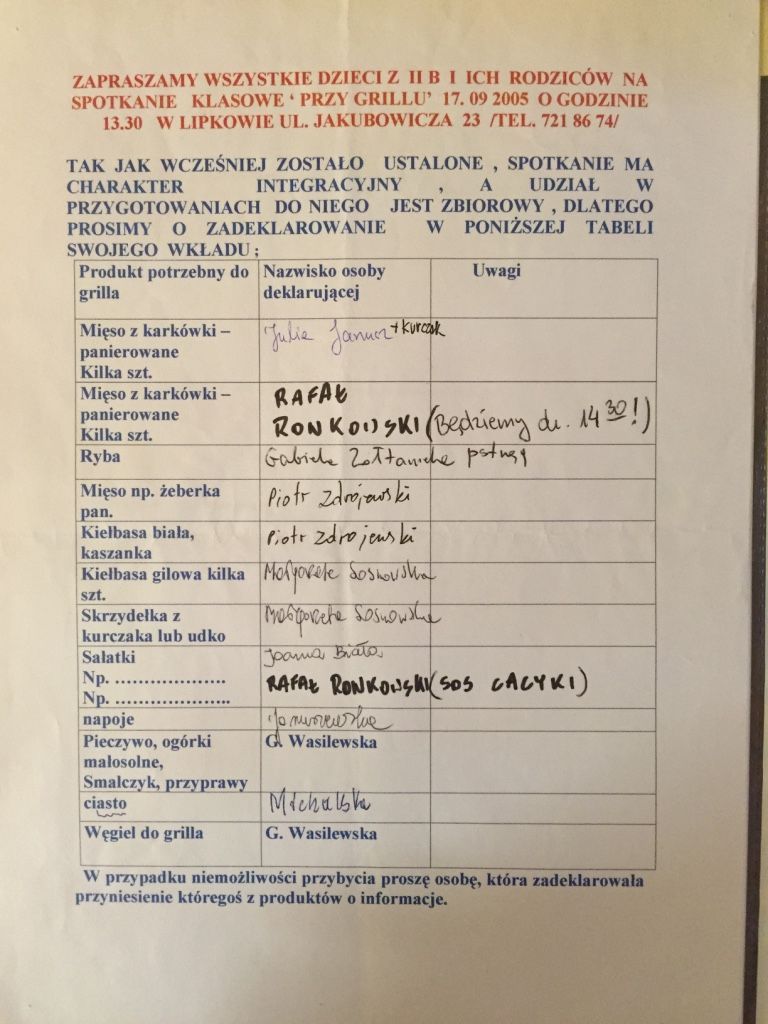 ZAPRASZAMY WSZYSTKIE DZIECI Z II B I ICH RODZICÓW NA
SPOTKANIE KLASOWE ‘ PRZY GRILLU’ 17. 09 2005 O GODZINIE
13.30 W LIPKOWIE UL. JAKUBOWICZA 23 /TEL. 721 86 74/
TAK JAK WCZEŚNIEJ ZOSTAŁO USTALONE , SPOTKANIE MA
CHARAKTER INTEGRACYJNY , A UDZIAŁ W
PRZYGOTOWANIACH DO NIEGO JEST ZBIOROWY , DLATEGO
PROSIMY O ZADEKLAROWANIE W PONIŻSZEJ TABELI
SWOJEGO WKŁADU ;
Produkt potrzebny do grilla
Nazwisko osoby deklarującej
Uwagi
Mięso z karkówki –
panierowane
Kilka szt.
Julia Janusz + kurczak
Mięso z karkówki –
panierowane
Kilka szt.
RAFAŁ
RONKOWSKI (Będziemy ok. 14 30!)
Ryba
Gabriela pstrągi
Mięso np. żeberka
pan.
Piotr Zdrojewski
Kiełbasa biała,
kaszanka
Piotr Zdrojewski
Kiełbasa gilowa kilka
szt.
Małgorzata Sosnowska
Skrzydełka z
kurczaka lub udko
Małgorzata Sosnowska
Sałatki
Np. …………………
Np. …………………..
Joanna Biała
RAFAŁ RONKOWSKI (SOS CACYKI)
napoje
Januszewska
Pieczywo, ogórki
małosolne,
Smalczyk, przyprawy
G. Wasilewska
ciasto
Michalska
Węgiel do grilla
G. Wasilewska
W przypadku niemożliwości przybycia proszę osobę, która zadeklarowała
przyniesienie któregoś z produktów o informacje.